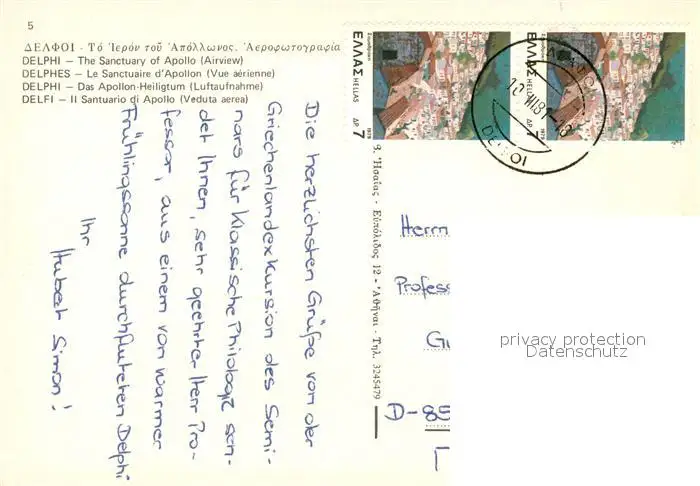 5
ΔΕΛΦΟΙ - Τό Ἱερόν τοῦ Ἀπόλλωνος. Ἀεροφωτογραφία
DELPHI — The Sanctuary of Apollo (Airview)
DELPHES — Le Sanctuaire d'Apollon (Vue aérienne)
DELPHI — Das Apollon-Heiligtum (Luftaufnahme)
DELFI — Il Santuario di Apollo (Veduta aerea)
Die herzlichsten Grüße von der
Griechenlandexkursion des Semi-
nars für Klassische Philologie sen-
det Ihnen, sehr geehrter Herr Pro-
fessor, aus einem von warmer
Frühlingssonne durchfluteten Delphi
Ihr
Hubert Simon!
Ἡσαΐας - Εὐπόλιδος 12 - Ἀθῆναι - Τηλ. 3245479
ΕΛΛΑΣ HELLAS
ΔΡ 7
1979
ΕΛΛΑΣ HELLAS
ΔΡ 7
1979
Herrn
Profess
D-85
privacy protection
Datenschutz